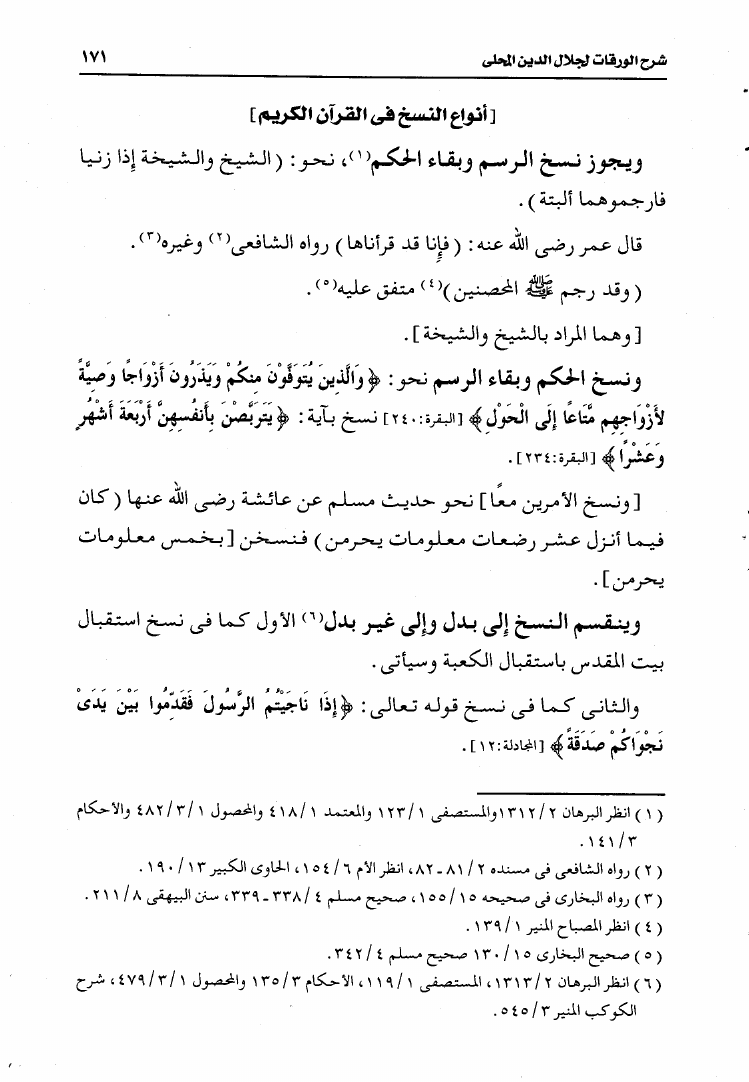 شرح الورقات لجلال الدين المحلى ١٧١
[أنواع النسخ فى القرآن الكريم]
ويجوز نسخ الرسم وبقاء الحكم(١)، نحو: (الشيخ والشيخة إذا زنيا
فارجموهما ألبتة).
قال عمر رضى الله عنه: (فإنا قد قرأناها) رواه الشافعى(٢) وغيره(٣).
(وقد رجم ﷺ المحصنين)(٤) متفق عليه(٥).
[وهما المراد بالشيخ والشيخة].
ونسخ الحكم وبقاء الرسم نحو: ﴿وَالَّذِينَ يُتَوَفَّوْنَ مِنكُمْ وَيَذَرُونَ أَزْوَاجًا وَصِيَّةً
لأَزْوَاجِهِم مَّتَاعًا إِلَى الْحَوْلِ﴾ [البقرة: ٢٤٠] نسخ بآية: ﴿يَتَرَبَّصْنَ بِأَنفُسِهِنَّ أَرْبَعَةَ أَشْهُرٍ
وَعَشْرًا﴾ [البقرة: ٢٣٤].
[ونسخ الأمرين معًا] نحو حديث مسلم عن عائشة رضى الله عنها (كان
فيما أنزل عشر رضعات معلومات يحرمن) فنسخن [بخمس معلومات
يحرمن].
وينقسم النسخ إلى بدل وإلى غير بدل(٦) الأول كما فى نسخ استقبال
بيت المقدس باستقبال الكعبة وسيأتى.
والثانى كما فى نسخ قوله تعالى: ﴿إِذَا نَاجَيْتُمُ الرَّسُولَ فَقَدِّمُوا بَيْنَ يَدَىْ
نَجْوَاكُمْ صَدَقَةً﴾ [المجادلة: ١٢].
(١) انظر البرهان ٢/ ١٣١٢ والمستصفى ١/ ١٢٣ والمعتمد ١/ ٤١٨ والمحصول ١/ ٣/ ٤٨٢ والأحكام
٣/ ١٤١.
(٢) رواه الشافعى فى مسنده ٢/ ٨١ ـ ٨٢، انظر الأم ٦/ ١٥٤، الحاوى الكبير ١٣/ ١٩٠.
(٣) رواه البخارى فى صحيحه ١٥/ ١٥٥، صحيح مسلم ٤/ ٣٣٨ ـ ٣٣٩، سنن البيهقى ٨/ ٢١١.
(٤) انظر المصباح المنير ١/ ١٣٩.
(٥) صحيح البخارى ١٥/ ١٣٠ صحيح مسلم ٤/ ٣٤٢.
(٦) انظر البرهان ٢/ ١٣١٣، المستصفى ١/ ١١٩، الأحكام ٣/ ١٣٥ والمحصول ١/ ٣/ ٤٧٩، شرح
الكوكب المنير ٣/ ٥٤٥.